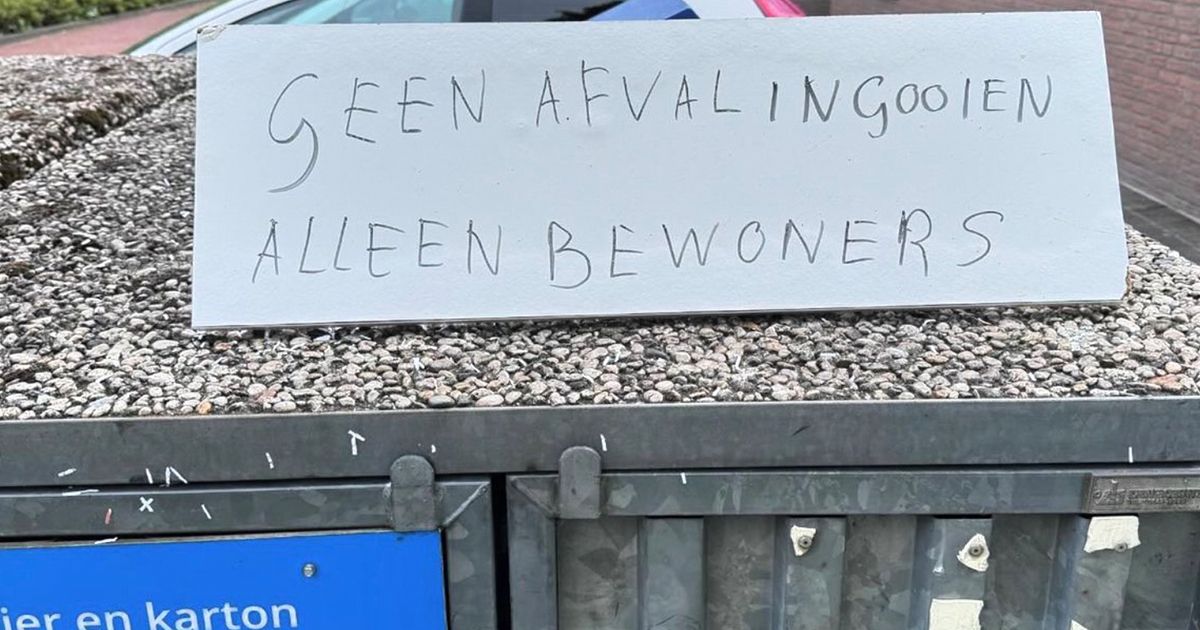 GEEN AFVAL INGOOIEN
ALLEEN BEWONERS
ier en karton